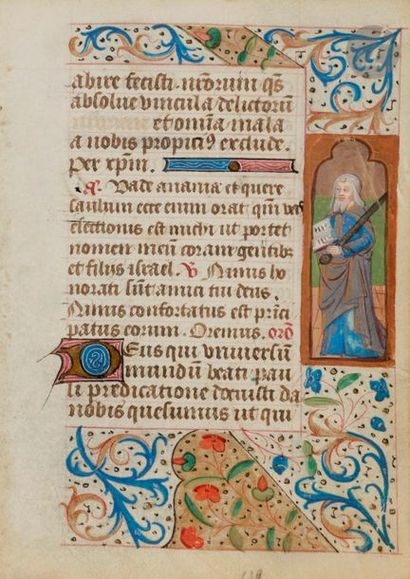 abire fecisti. nr̄orum q̄s
absolue vincula delictorū
et om̄ia mala
a nobis propiciꝰ exclude.
Per xp̄m.
Vade anania et quere
saulum ecce enim orat qm̄ vas
electionis est michi ut portet
nomen meū coram gentibꝫ
et filiis israel. ℣ Nimis ho
norati sūt amici tui deus.
Nimis confortatus est p̄nci
patus eorum. Oremus. or̄o
Deus qui vniuersū
mundū beati pau
li predicatione docuisti da
nobis quesumus ut qui